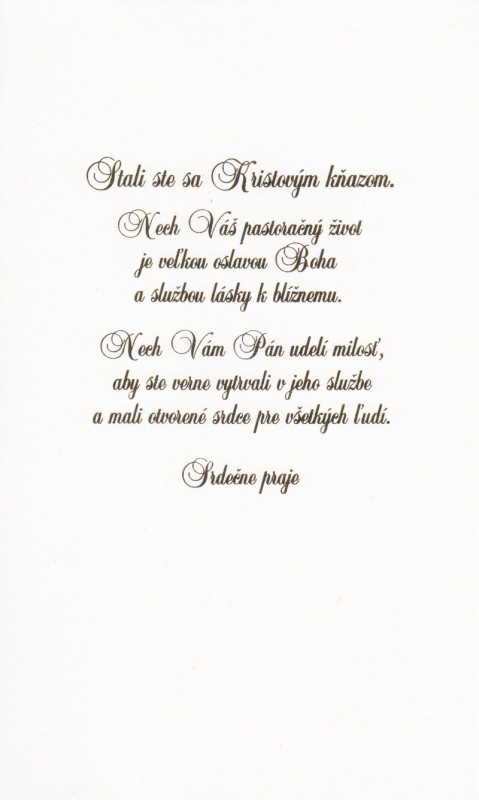 Stali ste sa Kristovým kňazom.
Nech Váš pastoračný život
je veľkou oslavou Boha
a službou lásky k blížnemu.
Nech Vám Pán udelí milosť,
aby ste verne vytrvali v jeho službe
a mali otvorené srdce pre všetkých ľudí.
Srdečne praje